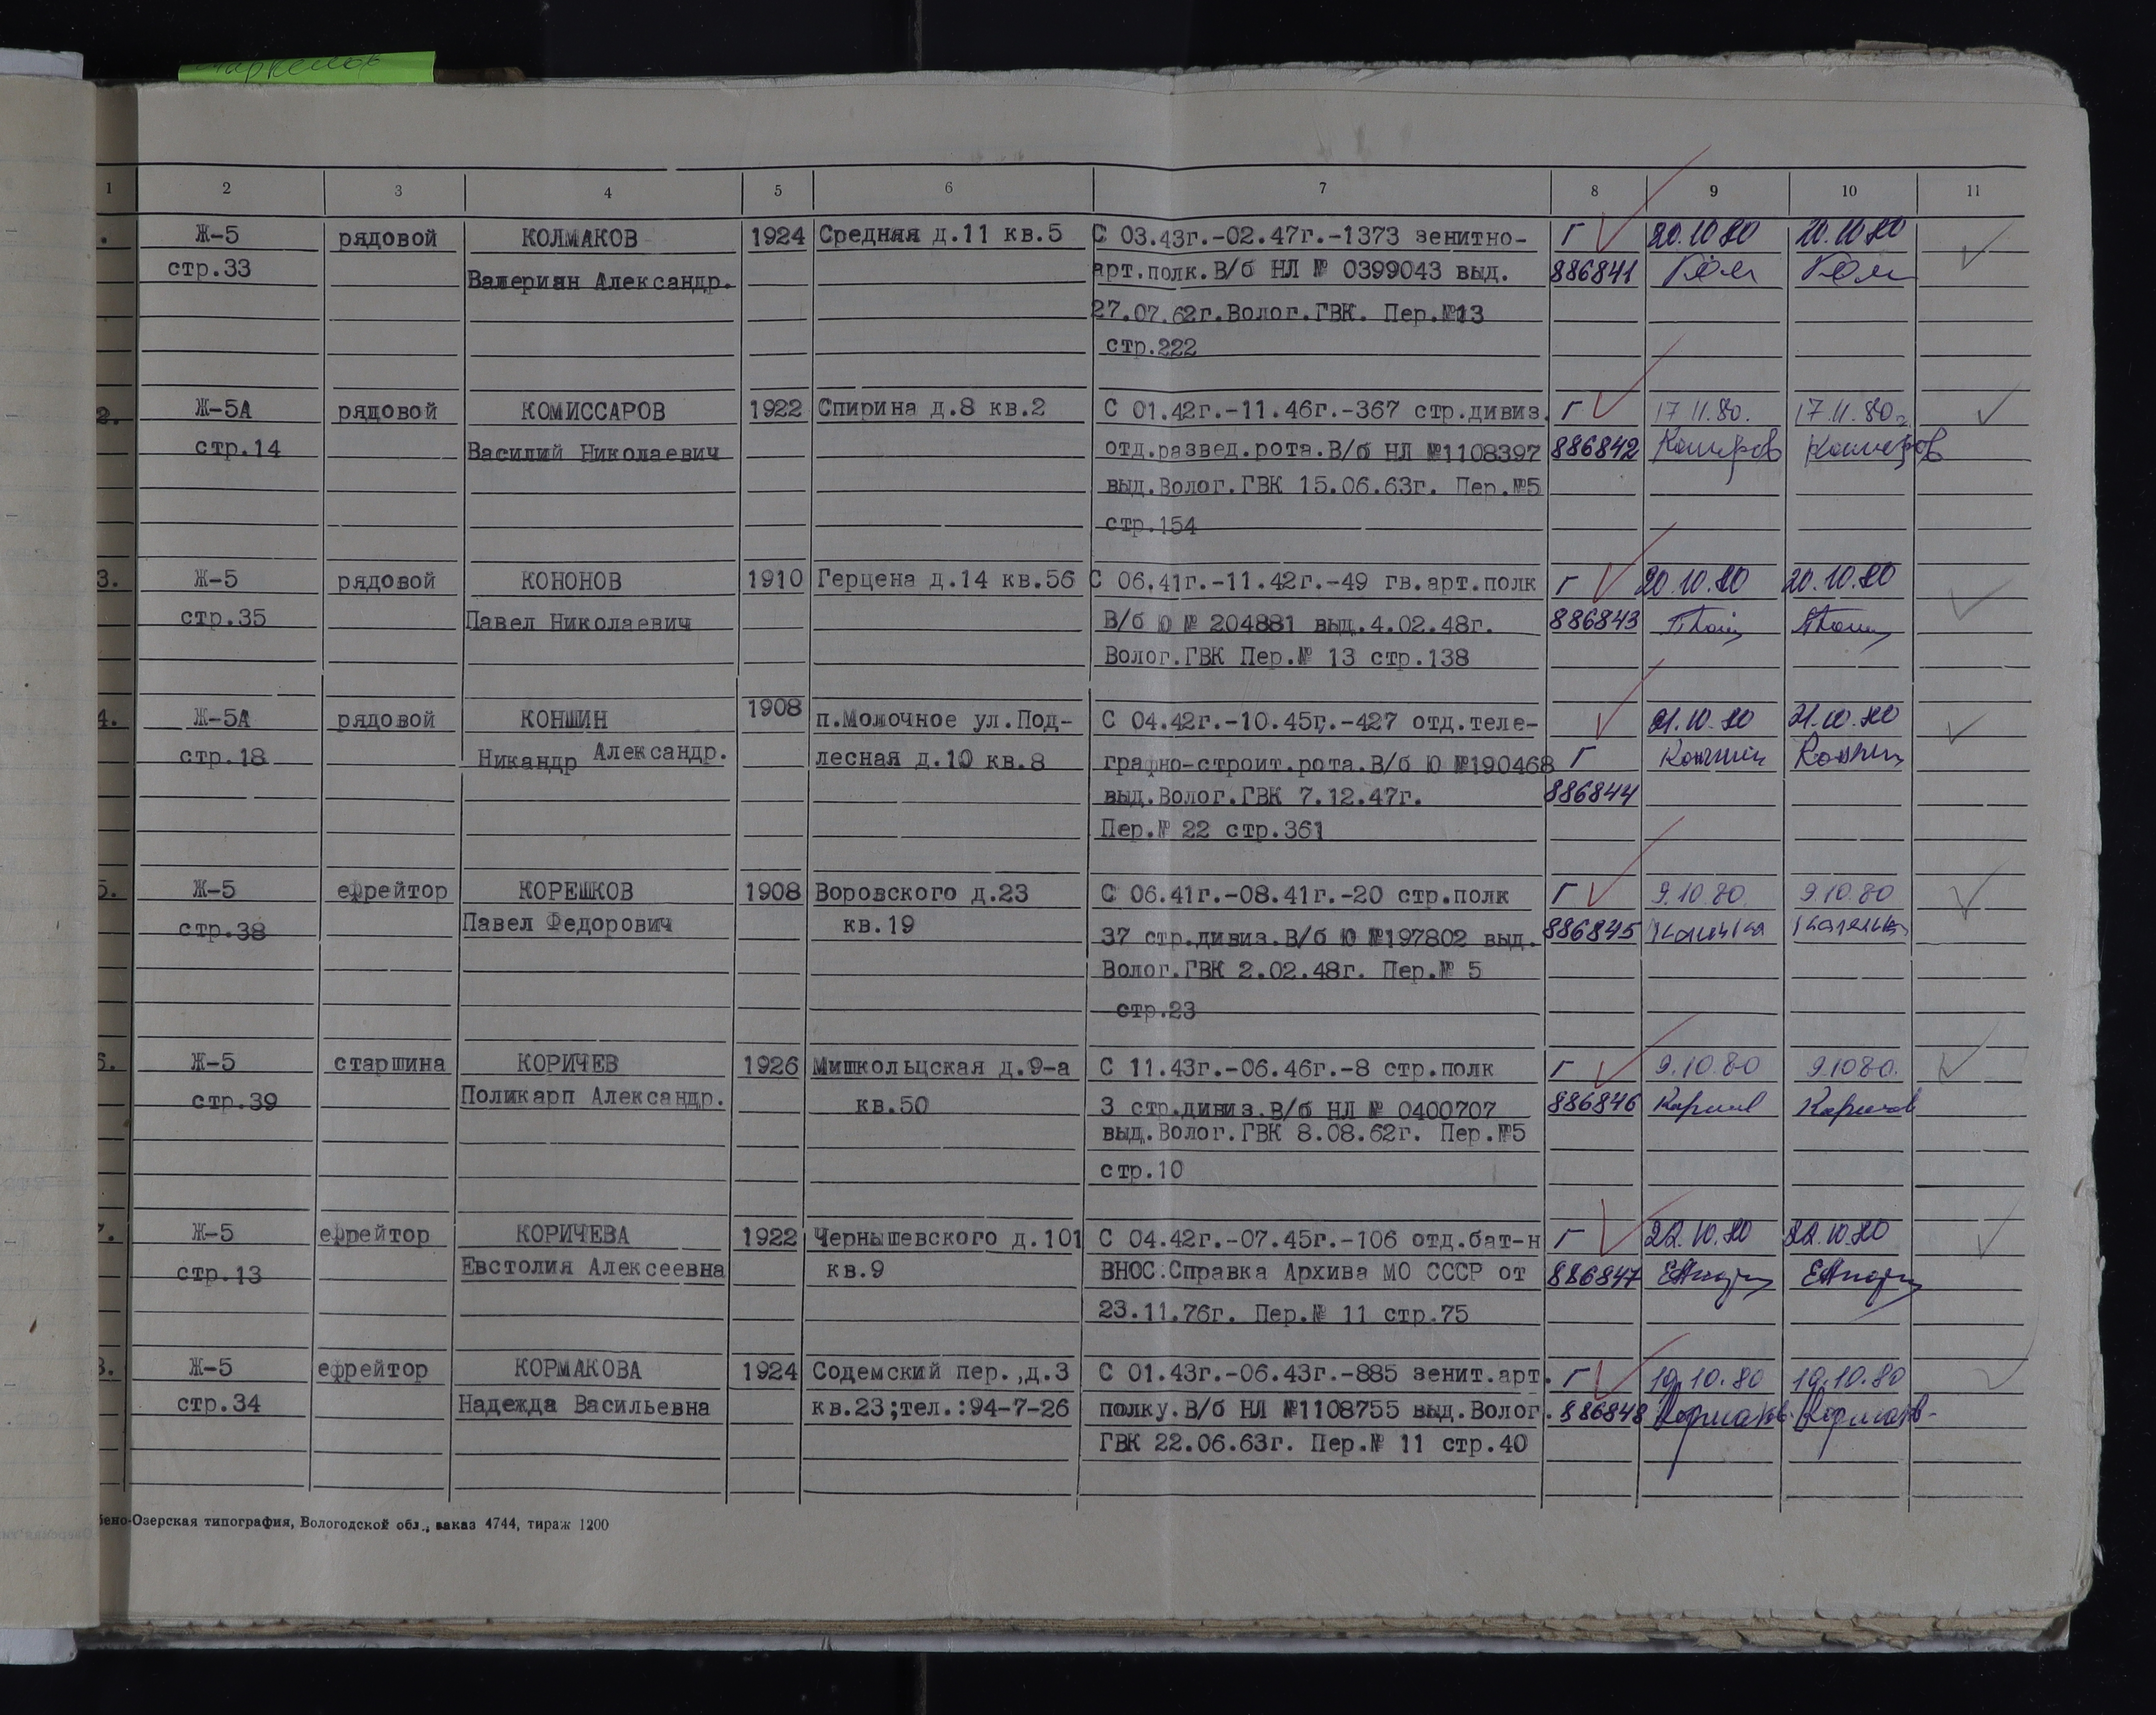 1 2 3 4 5 6 7 8 9 10 11
. Ж-5 рядовой КОЛМАКОВ 1924 Средняя д.11 кв.5 С 03.43г.-02.47г.-1373 зенитно- Г 20.10.80 20.10.80
стр.33 Валериан Александр. арт.полк.В/б НЛ № 0399043 выд. 886841
27.07.62г.Волог.ГВК. Пер.№13
стр.222
2. Ж-5А рядовой КОМИССАРОВ 1922 Спирина д.8 кв.2 С 01.42г.-11.46г.-367 стр.дивиз. Г 17.11.80. 17.11.80г.
стр.14 Василий Николаевич отд.развед.рота.В/б НЛ №1108397 886842
выд.Волог.ГВК 15.06.63г. Пер.№5
стр.154
3. Ж-5 рядовой КОНОНОВ 1910 Герцена д.14 кв.56 С 06.41г.-11.42г.-49 гв.арт.полк Г 20.10.80 20.10.80
стр.35 Павел Николаевич В/б Ю № 204881 выд.4.02.48г. 886843
Волог.ГВК Пер.№ 13 стр.138
4. Ж-5А рядовой КОНШИН 1908 п.Молочное ул.Под- С 04.42г.-10.45г.-427 отд.теле- 21.10.80 21.10.80
стр.18 Никандр Александр. лесная д.10 кв.8 графно-строит.рота.В/б Ю №190468 Г Коншин Коншин
выд.Волог.ГВК 7.12.47г. 886844
Пер.№ 22 стр.361
5. Ж-5 ефрейтор КОРЕШКОВ 1908 Воровского д.23 С 06.41г.-08.41г.-20 стр.полк Г 9.10.80. 9.10.80
стр.38 Павел Федорович кв.19 37 стр.дивиз.В/б Ю №197802 выд. 886845
Волог.ГВК 2.02.48г. Пер.№ 5
стр.23
6. Ж-5 старшина КОРИЧЕВ 1926 Мишкольцская д.9-а С 11.43г.-06.46г.-8 стр.полк Г 9.10.80 9.10.80.
стр.39 Поликарп Александр. кв.50 3 стр.дивиз.В/б НЛ № 0400707 886846 Коричев Коричев
выд.Волог.ГВК 8.08.62г. Пер.№5
стр.10
7. Ж-5 ефрейтор КОРИЧЕВА 1922 Чернышевского д.101 С 04.42г.-07.45г.-106 отд.бат-н Г 22.10.80 22.10.80
стр.13 Евстолия Алексеевна кв.9 ВНОС.Справка Архива МО СССР от 886847
23.11.76г. Пер.№ 11 стр.75
8. Ж-5 ефрейтор КОРМАКОВА 1924 Содемский пер.,д.3 С 01.43г.-06.43г.-885 зенит.арт. Г 10.10.80 10.10.80
стр.34 Надежда Васильевна кв.23;тел.:94-7-26 полку.В/б НЛ №1108755 выд.Волог. 886848
ГВК 22.06.63г. Пер.№ 11 стр.40
бено-Озерская типография, Вологодской обл., заказ 4744, тираж 1200